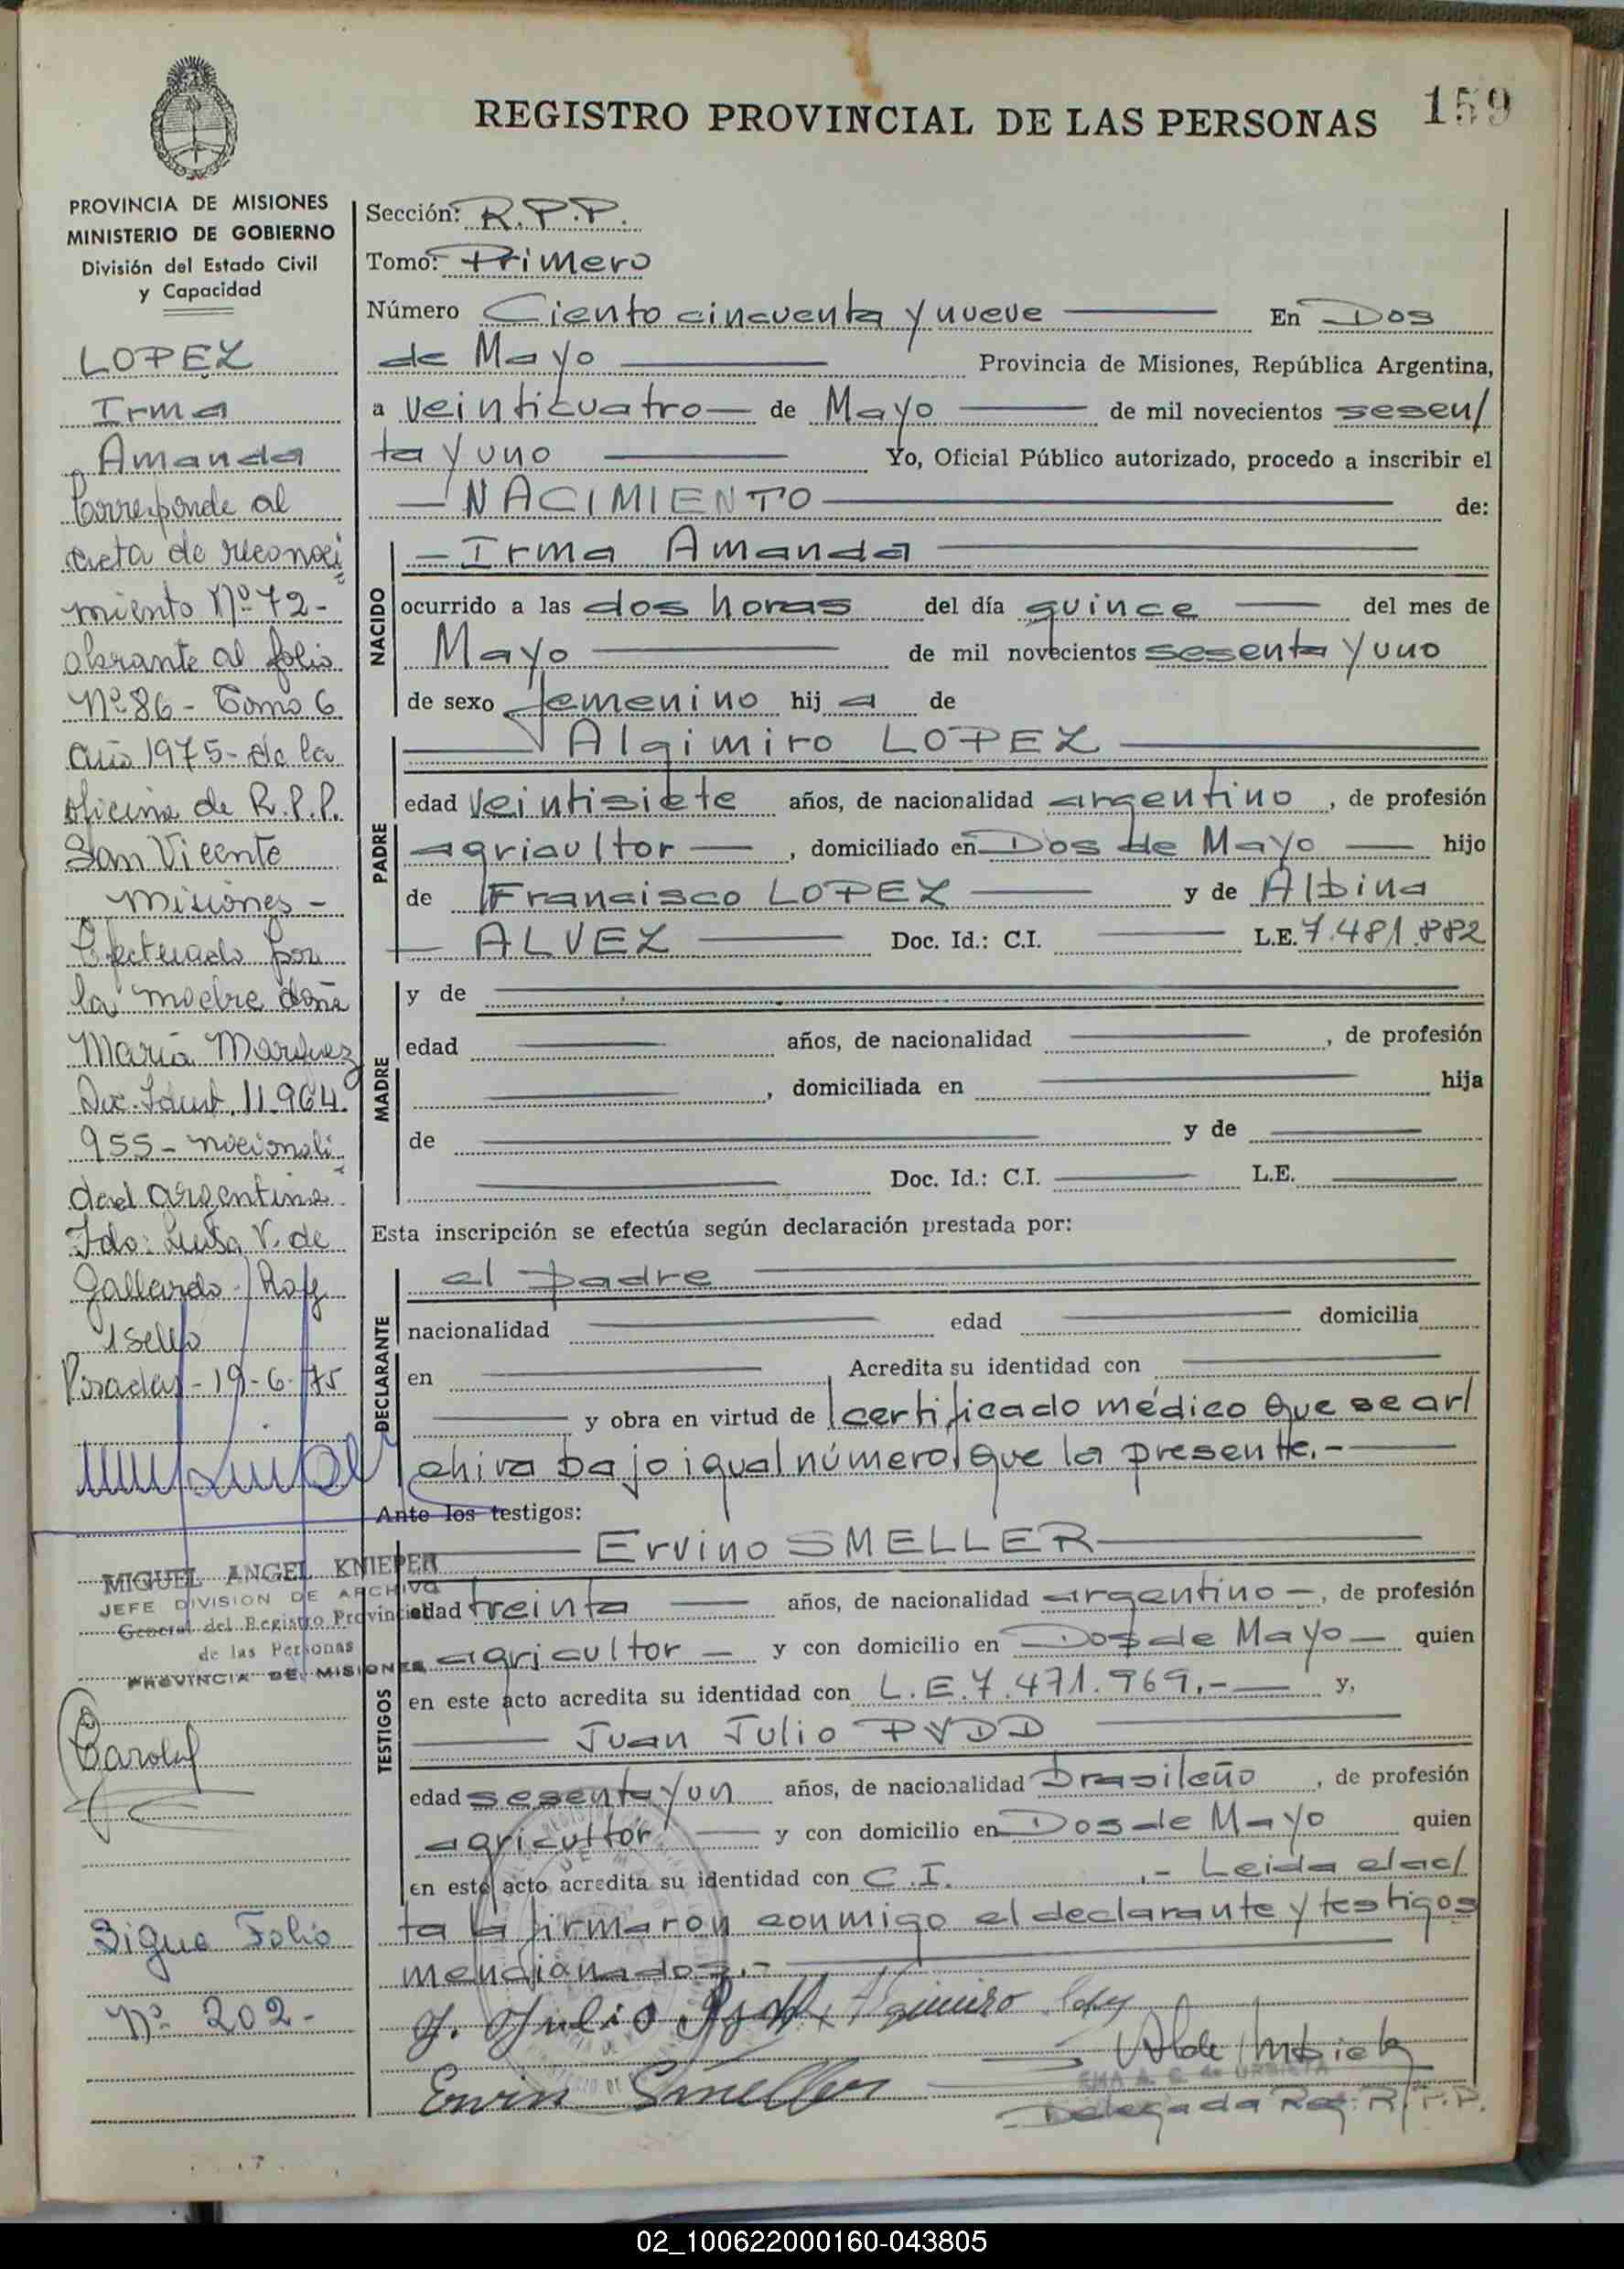 REGISTRO PROVINCIAL DE LAS PERSONAS
159
PROVINCIA DE MISIONES
MINISTERIO DE GOBIERNO
División del Estado Civil
y Capacidad
LOPEZ
Irma
Amanda
Corresponde al
acta de reconoci
miento Nº 72-
obrante al folio
Nº 86 - Tomo 6
Año 1975- de la
oficina de R.P.P.
San Vicente
Misiones -
Efectuado por
la madre doña
María Marquez
Doc. Ident. 11.964.
955 - nacionali
dad argentina.
Fdo: Luisa V. de
Gallardo -
1 sello
Posadas - 19-6-75
MIGUEL ANGEL KNIEPER
JEFE DIVISION DE ARCHIVO
General del Registro Provincial
de las Personas
PROVINCIA DE MISIONES
Sigue Folio
Nº 202-
Sección: R.P.P.
Tomo: Primero
Número Ciento cincuenta y nueve En Dos
de Mayo Provincia de Misiones, República Argentina,
a veinticuatro de Mayo de mil novecientos sesen/
ta y uno Yo, Oficial Público autorizado, procedo a inscribir el
NACIMIENTO de:
NACIDO
Irma Amanda
ocurrido a las dos horas del día quince del mes de
Mayo de mil novecientos sesenta y uno
de sexo femenino hij a de
PADRE
Algimiro LOPEZ
edad veintisiete años, de nacionalidad argentino, de profesión
agricultor, domiciliado en Dos de Mayo hijo
de Francisco LOPEZ y de Albina
ALVEZ Doc. Id.: C.I. L.E. 7.481.882
MADRE
y de
edad años, de nacionalidad , de profesión
, domiciliada en hija
de y de
Doc. Id.: C.I. L.E.
Esta inscripción se efectúa según declaración prestada por:
DECLARANTE
el padre
nacionalidad edad domicilia
en Acredita su identidad con
y obra en virtud de certificado médico que se ar/
chiva bajo igual número que la presente.-
Ante los testigos:
TESTIGOS
Ervino SMELLER
edad treinta años, de nacionalidad argentino -, de profesión
agricultor - y con domicilio en Dos de Mayo - quien
en este acto acredita su identidad con L.E. 7.471.969.- y,
Juan Julio PYDD
edad sesenta y un años, de nacionalidad brasileño, de profesión
agricultor y con domicilio en Dos de Mayo quien
en este acto acredita su identidad con C.I. .- Leida el ac/
ta la firmaron conmigo el declarante y testigos
mencionados.-
J. Julio
Erwin Smeller
Delegada Reg. R.P.P.
02_100622000160-043805